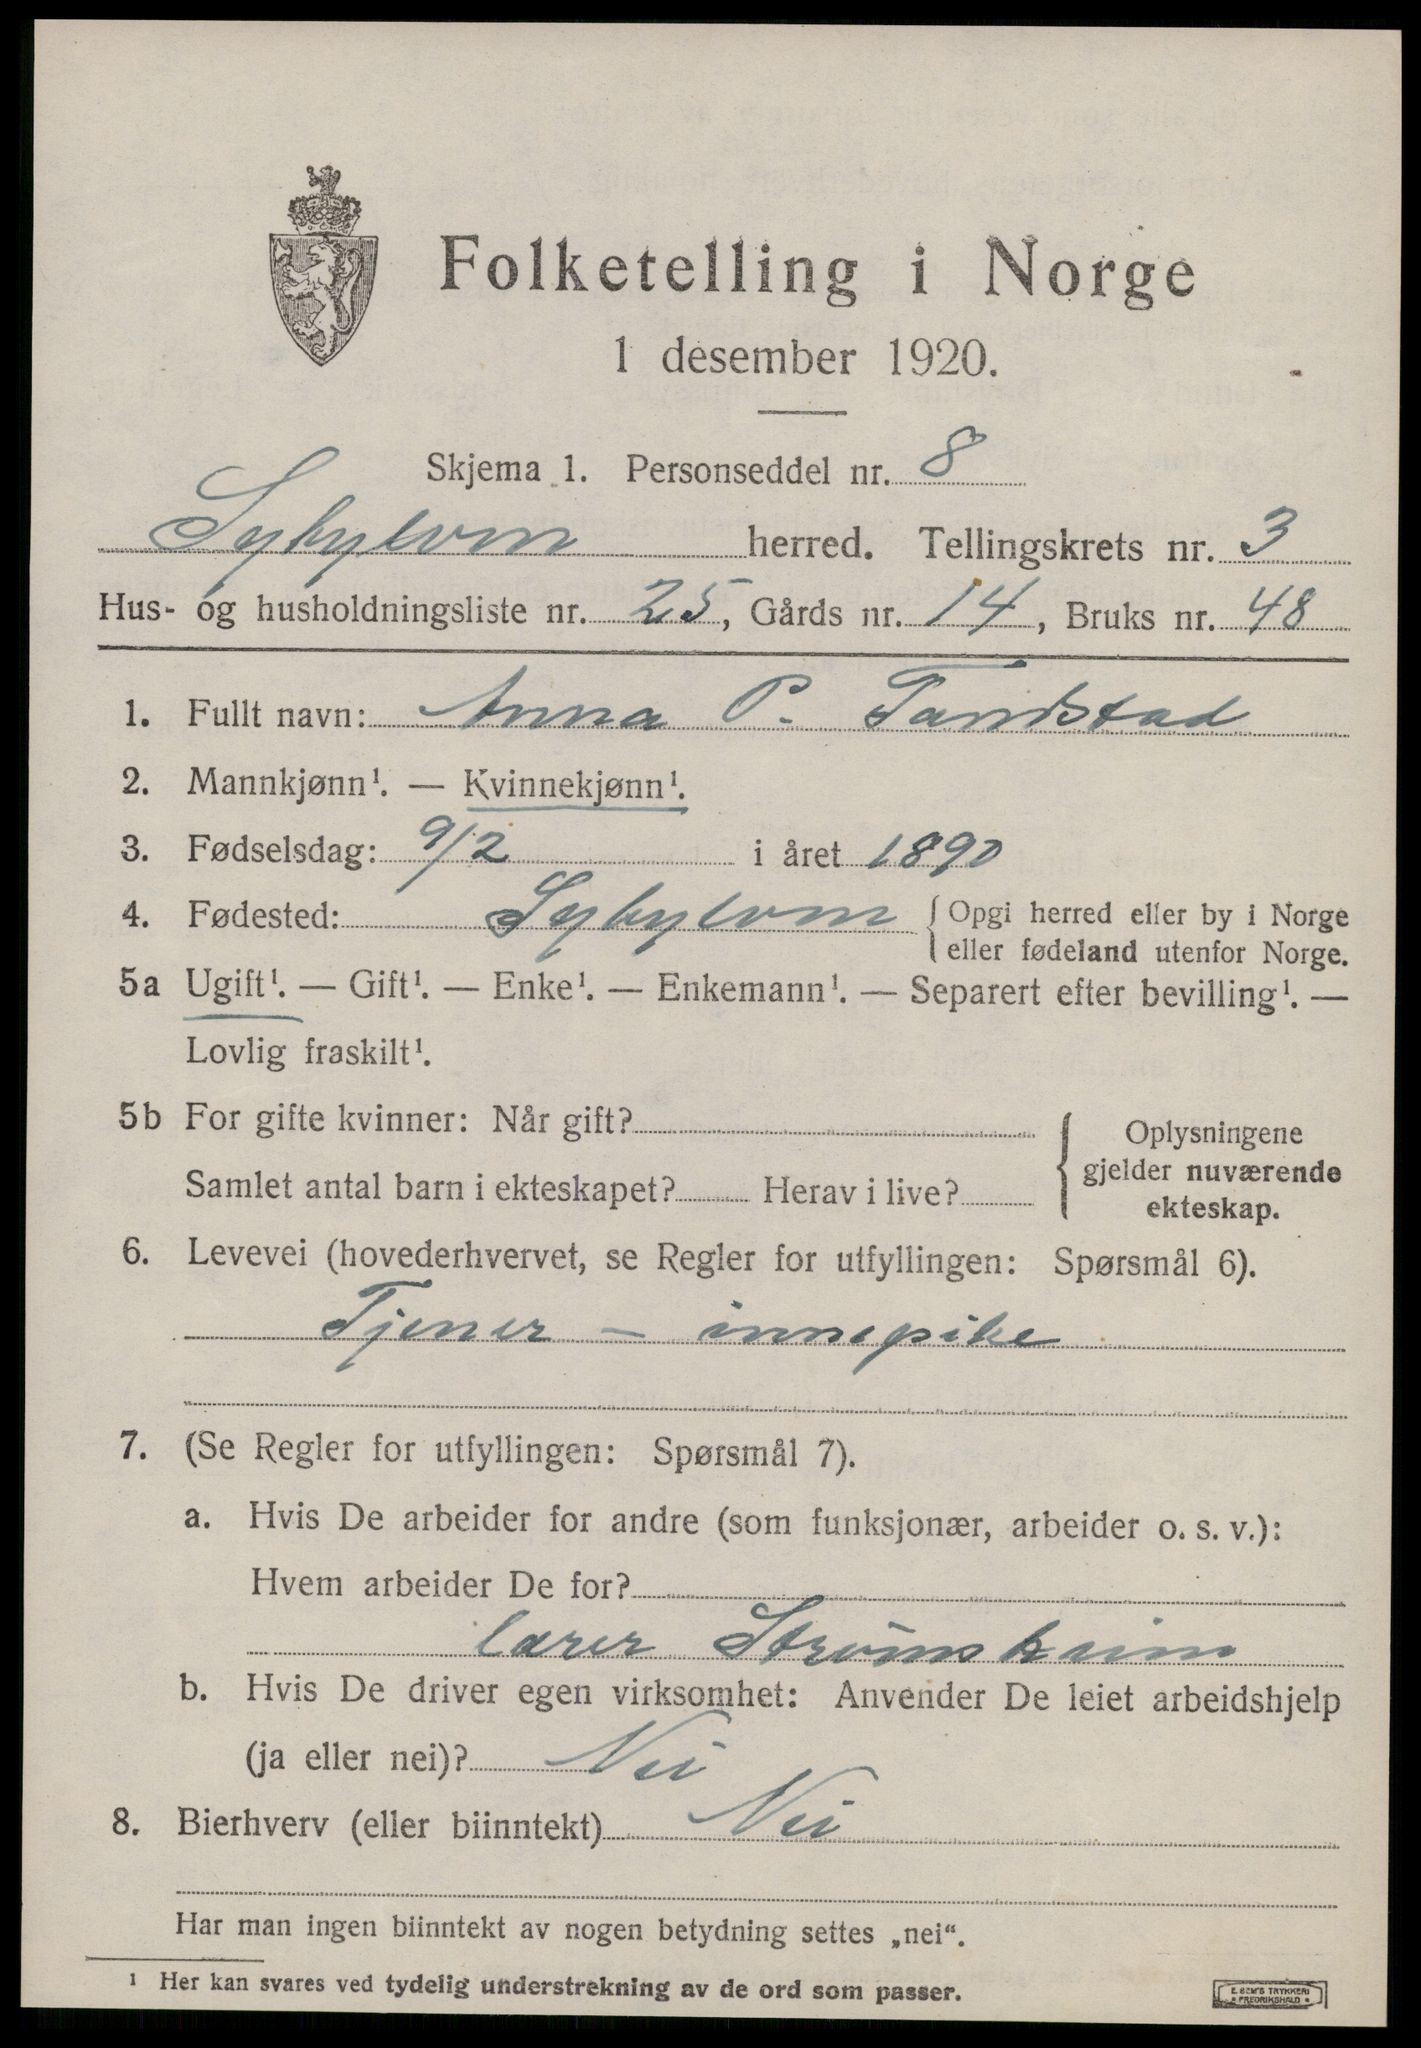 Folketelling i Norge
1 desember 1920.
Skjema 1. Personseddel nr. 8
Sykylven herred. Tellingskrets nr. 3
Hus- og husholdningsliste nr. 25, Gårds nr. 14, Bruks nr. 48
1. Fullt navn: Anna P. Tandstad
2. Mannkjønn¹. — Kvinnekjønn¹.
3. Fødselsdag: 9/2 i året 1890
4. Fødested: Sykylven { Opgi herred eller by i Norge
eller fødeland utenfor Norge.
5a Ugift¹. — Gift¹. — Enke¹. — Enkemann¹. — Separert efter bevilling¹. —
Lovlig fraskilt¹.
5b For gifte kvinner: Når gift?
Samlet antal barn i ekteskapet? Herav i live?
{ Oplysningene
gjelder nuværende
ekteskap.
6. Levevei (hovederhvervet, se Regler for utfyllingen: Spørsmål 6).
Tjener - innepike
7. (Se Regler for utfyllingen: Spørsmål 7).
a. Hvis De arbeider for andre (som funksjonær, arbeider o. s. v.):
Hvem arbeider De for?
lærer Strømsheim
b. Hvis De driver egen virksomhet: Anvender De leiet arbeidshjelp
(ja eller nei)? Nei
8. Bierhverv (eller biinntekt) Nei
Har man ingen biinntekt av nogen betydning settes „nei“.
¹ Her kan svares ved tydelig understrekning av de ord som passer.
E. SEM'S TRYKKERI
FREDRIKSHALD